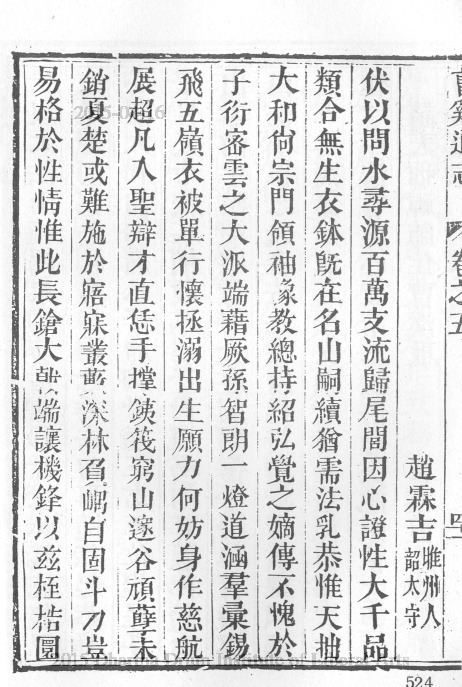 曹溪通志 卷之五
趙霖吉 睢州人韶太守
伏以問水尋源百萬支流歸尾閭因心證性大千品
類合無生衣鉢旣在名山嗣續猶需法乳恭惟天拙
大和尙宗門領袖象教總持紹弘覺之嫡傳不愧於
子衍密雲之大派端藉厥孫智朗一燈道涵羣彙錫
飛五嶺衣被單行懷拯溺出生願力何妨身作慈航
展超凡入聖辯才直恁手撑鐵筏窮山邃谷頑孽未
銷夏楚或難施於寤寐叢藪深林負嵎自固斗刁豈
易格於性情惟此長鎗大戟端讓機鋒以茲桎梏圜
524